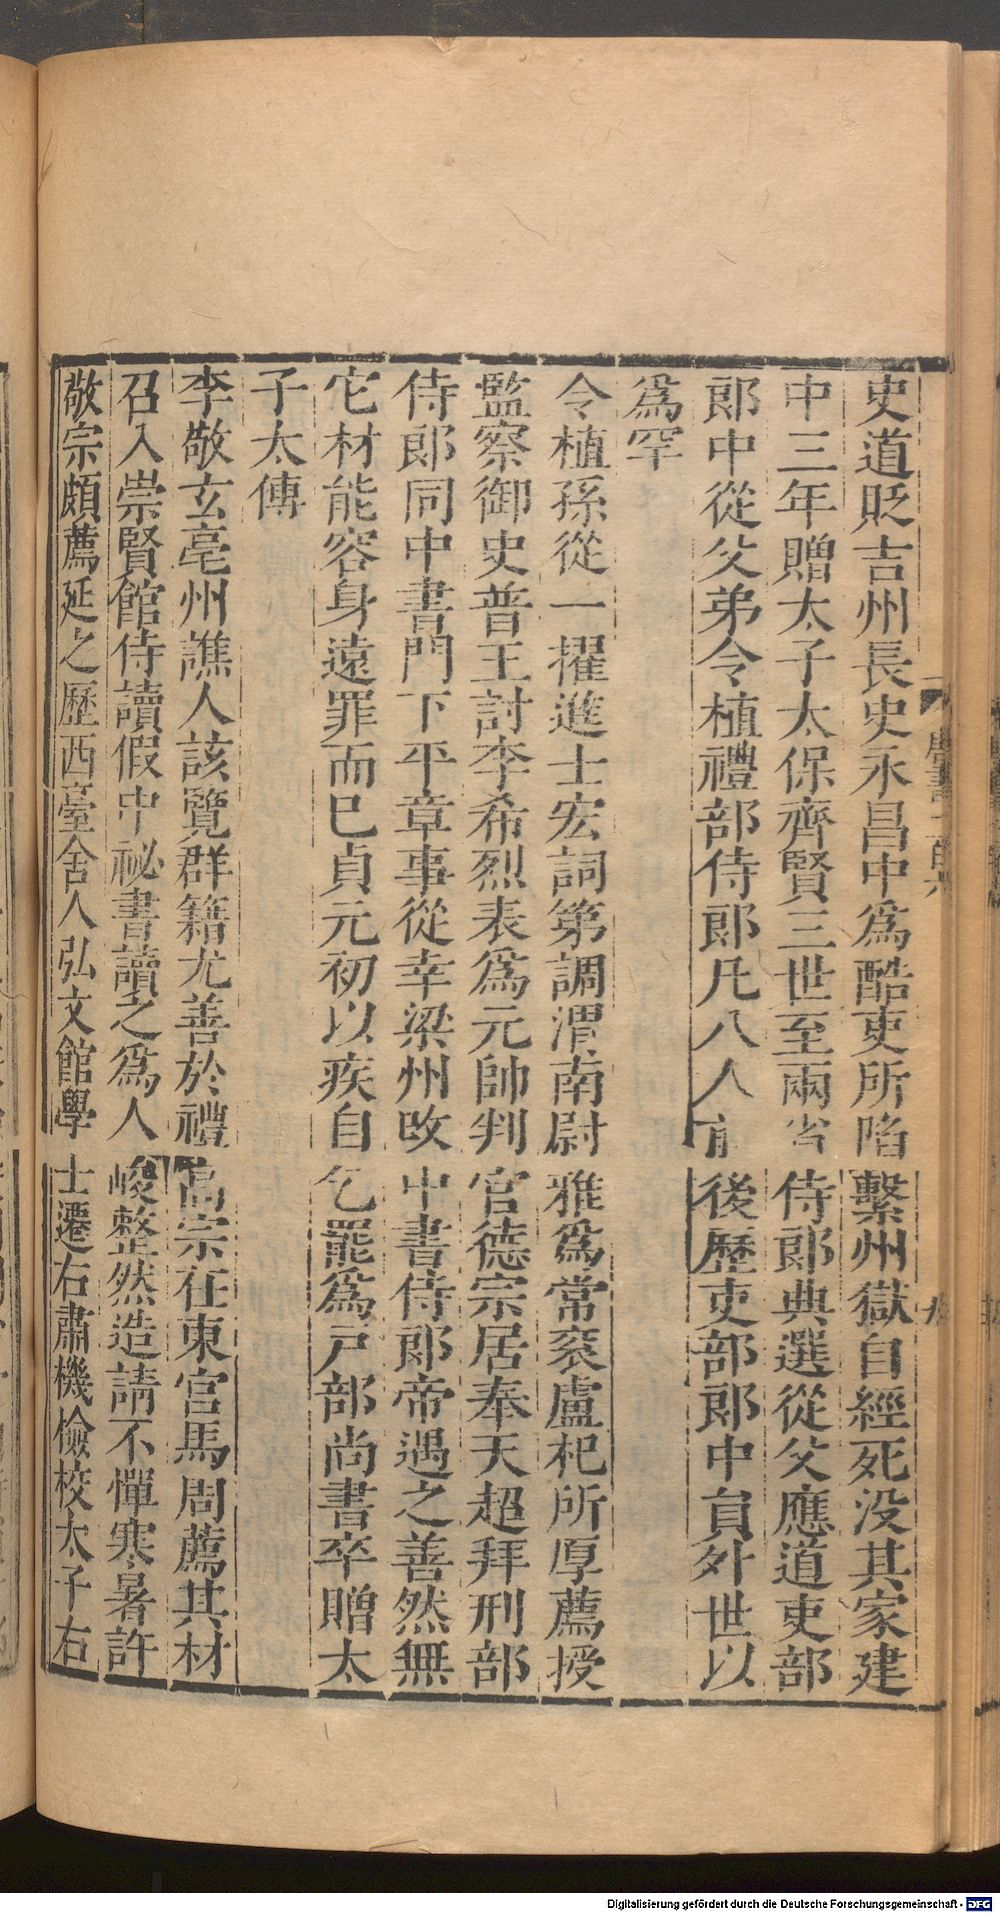 史道貶吉州長史永昌中爲酷吏所陷繫州獄自經死没其家建
中三年贈太子太保齊賢三世至兩省侍郎典選從父應道吏部
郎中從父弟令植禮部侍郎凡八人前後歷吏部郎中員外世以
爲罕
令植孫從一擢進士宏詞第調渭南尉雅爲常衮盧杞所厚薦授
監察御史普王討李希烈表爲元帥判官德宗居奉天超拜刑部
侍郎同中書門下平章事從幸梁州改中書侍郎帝遇之善然無
它材能容身遠罪而已貞元初以疾自乞罷爲戶部尚書卒贈太
子太傅
李敬玄亳州譙人該覽群籍尤善於禮高宗在東宮馬周薦其材
召入崇賢館侍讀假中祕書讀之爲人峻整然造請不憚寒暑許
敬宗頗薦延之歷西臺舍人弘文館學士遷右肅機儉校太子右
Digitalisierung gefördert durch die Deutsche Forschungsgemeinschaft - DFG